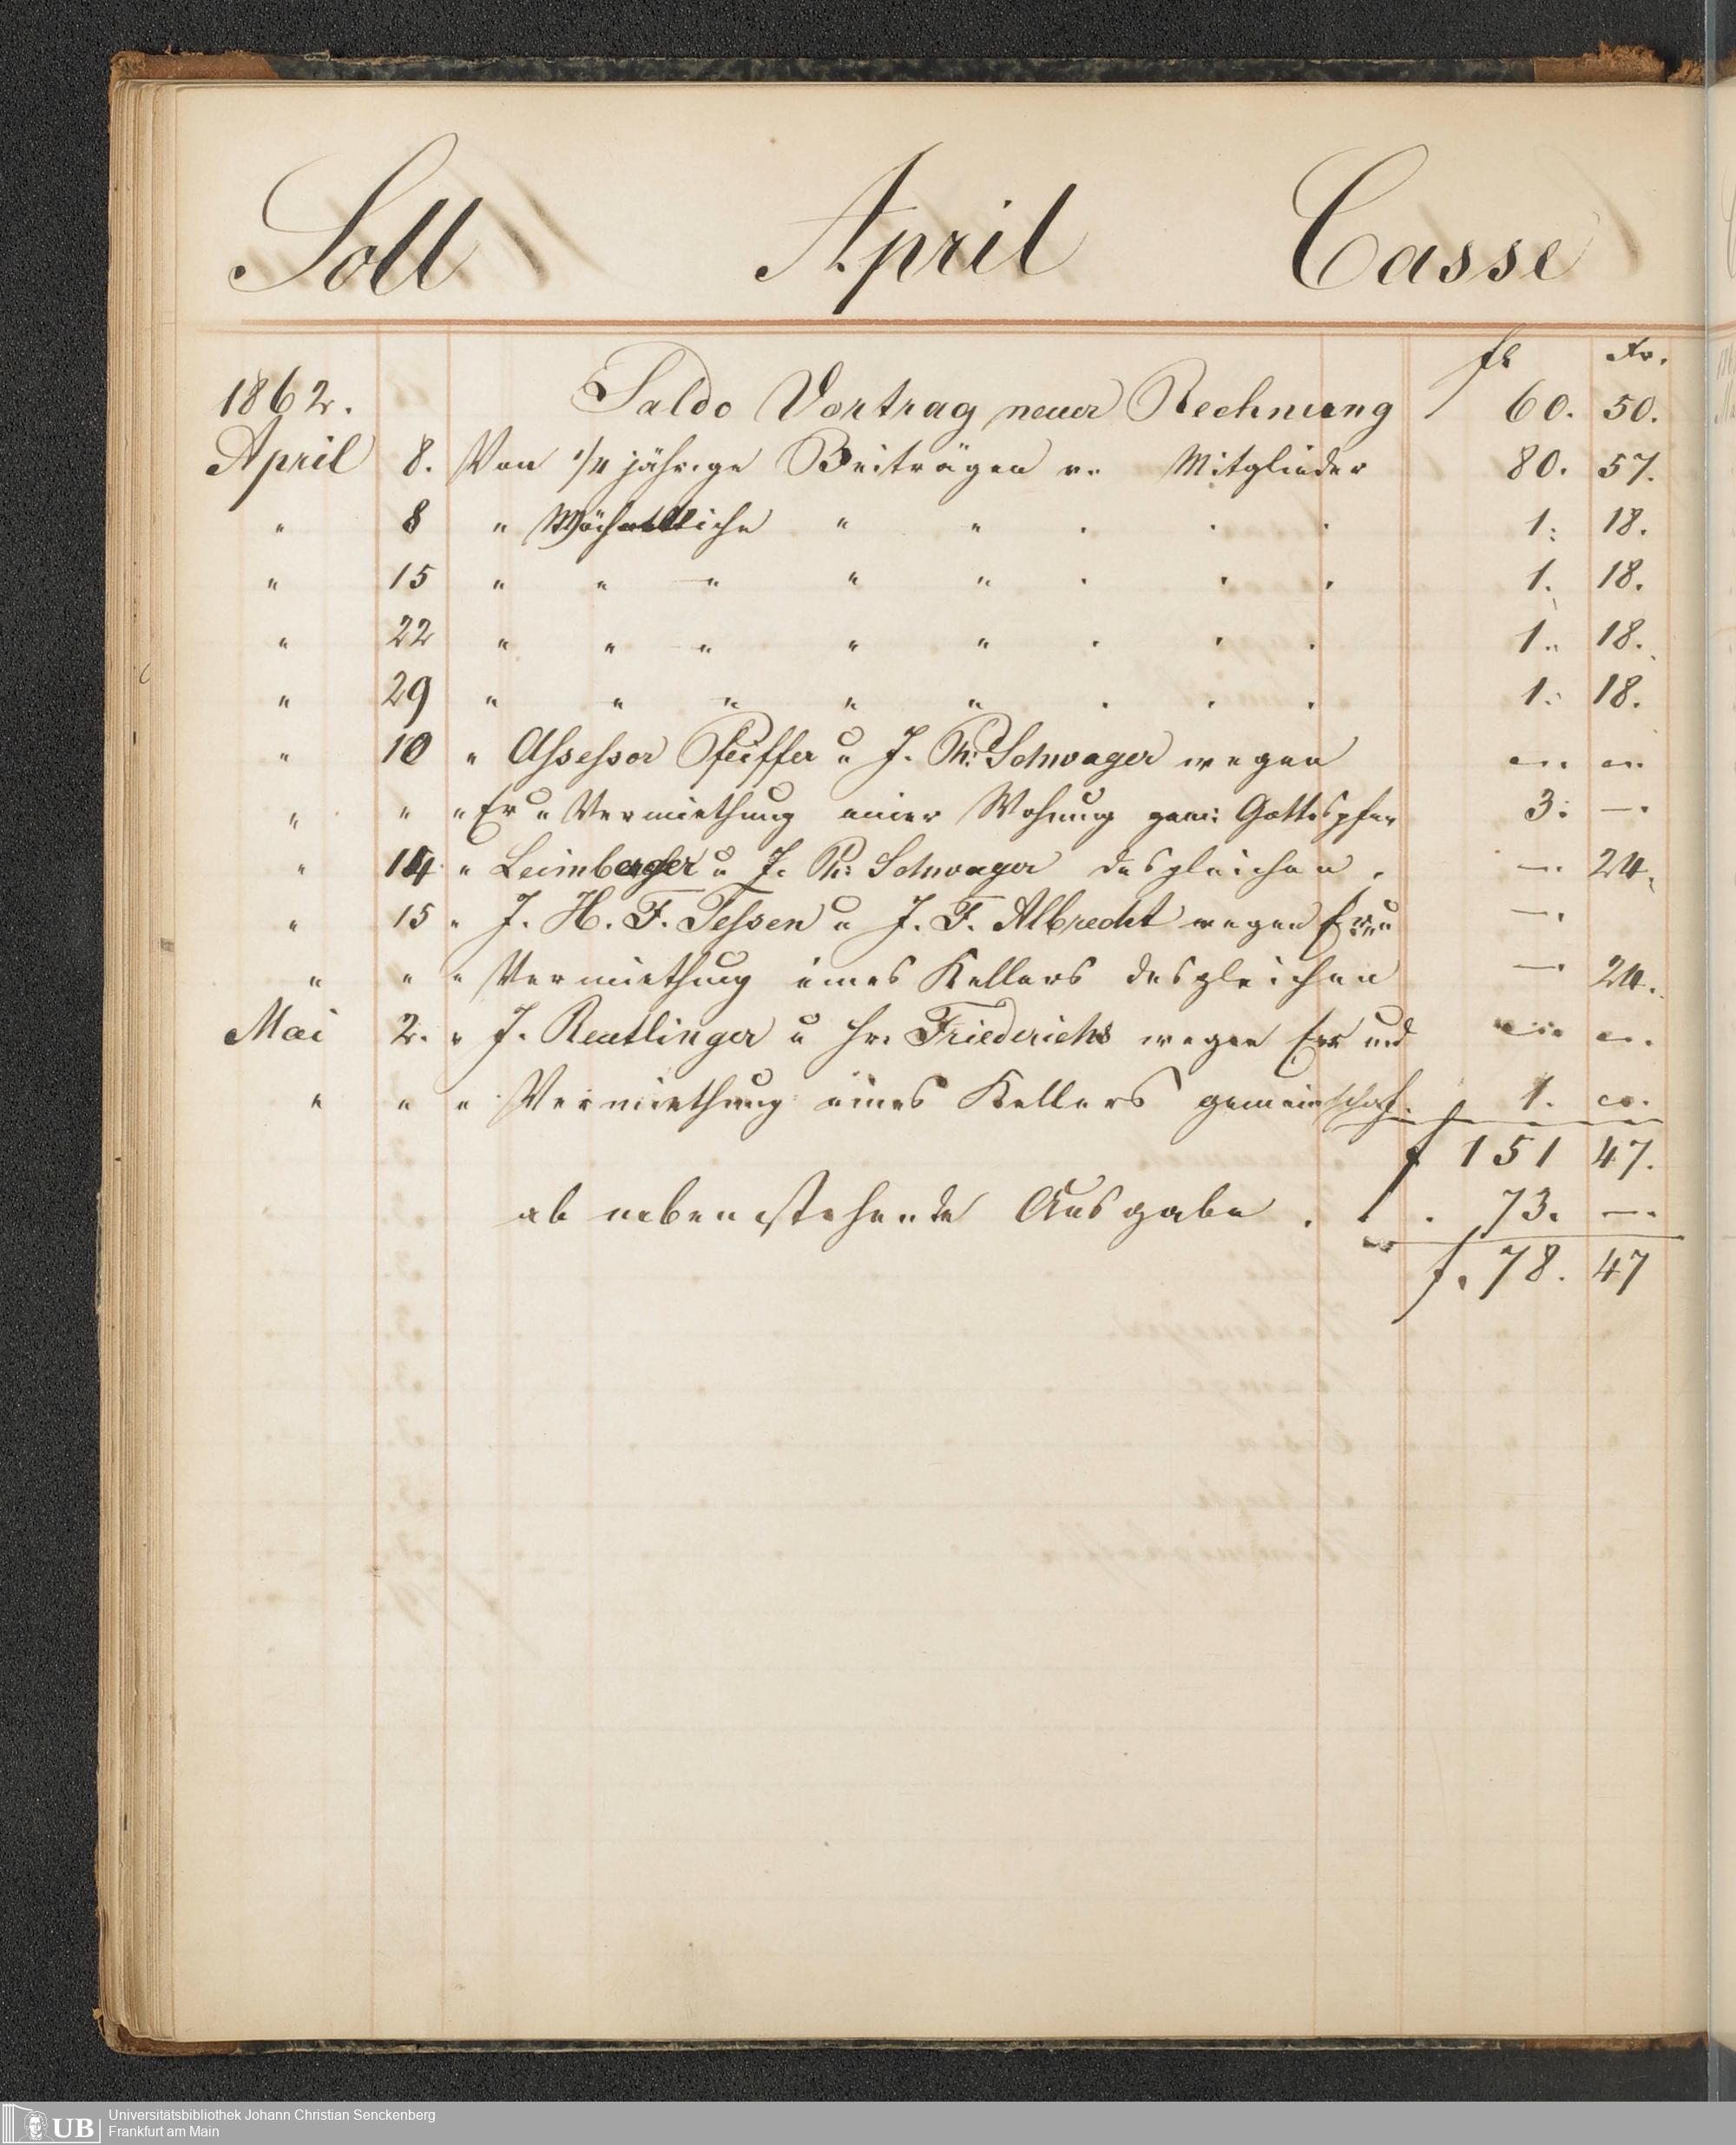 Soll April Casse
fl Xr.
1862. Saldo Vortrag neuer Rechnung 60. 50.
April 8. Von 1/4 jährige Beiträgen v. Mitglieder 80. 57.
" 8 " Wöchentliche " " . . . 1. 18.
" 15 " " " " " . . . 1. 18.
" 22 " " " " " . . . 1. 18.
" 29 " " " " " . . . 1. 18.
" 10 " Assessor Pfeiffer u J. Ph: Schwager wegen
" " " Er u Vermiethung einer Wohnung gem: Gottespfen 3. —.
" 14 " Leimberger u J. Ph: Schwager desgleichen . —. 24.
" 15 " J. H. F. Jessen u J. F. Albrecht wegen Er u —.
" " " Vermiethung eines Kellers desgleichen —. 24.
Mai 2. " J. Reutlinger u Hr. Friederichs wegen Er und
" " " Vermiethung eines Kellers gemeinschaf. 1.
f 151 47.
ab nebenstehende Ausgabe . . . 73. —.
f. 78. 47
UB Universitätsbibliothek Johann Christian Senckenberg
Frankfurt am Main